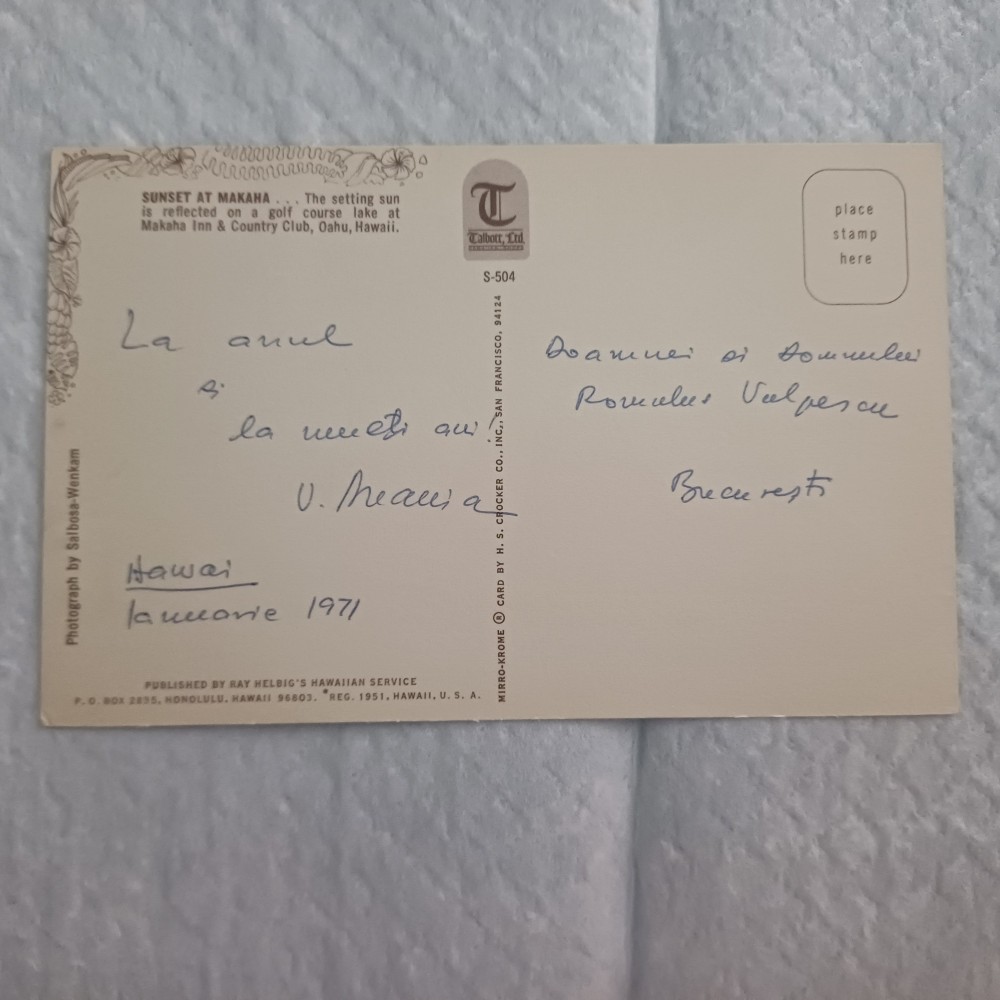 SUNSET AT MAKAHA . . . The setting sun
is reflected on a golf course lake at
Makaha Inn & Country Club, Oahu, Hawaii.
T
Talbott, Ltd.
S-504
place
stamp
here
La anul
și
la mulți ani!
Hawai
Ianuarie 1971
Doamnei și Domnului
Romulus Vulpescu
București
Photograph by Salbosa-Wenkam
MIRRO-KROME ® CARD BY H. S. CROCKER CO., INC., SAN FRANCISCO, 94124
PUBLISHED BY RAY HELBIG'S HAWAIIAN SERVICE
P. O. BOX 2835, HONOLULU, HAWAII 96803. *REG. 1951, HAWAII, U. S. A.